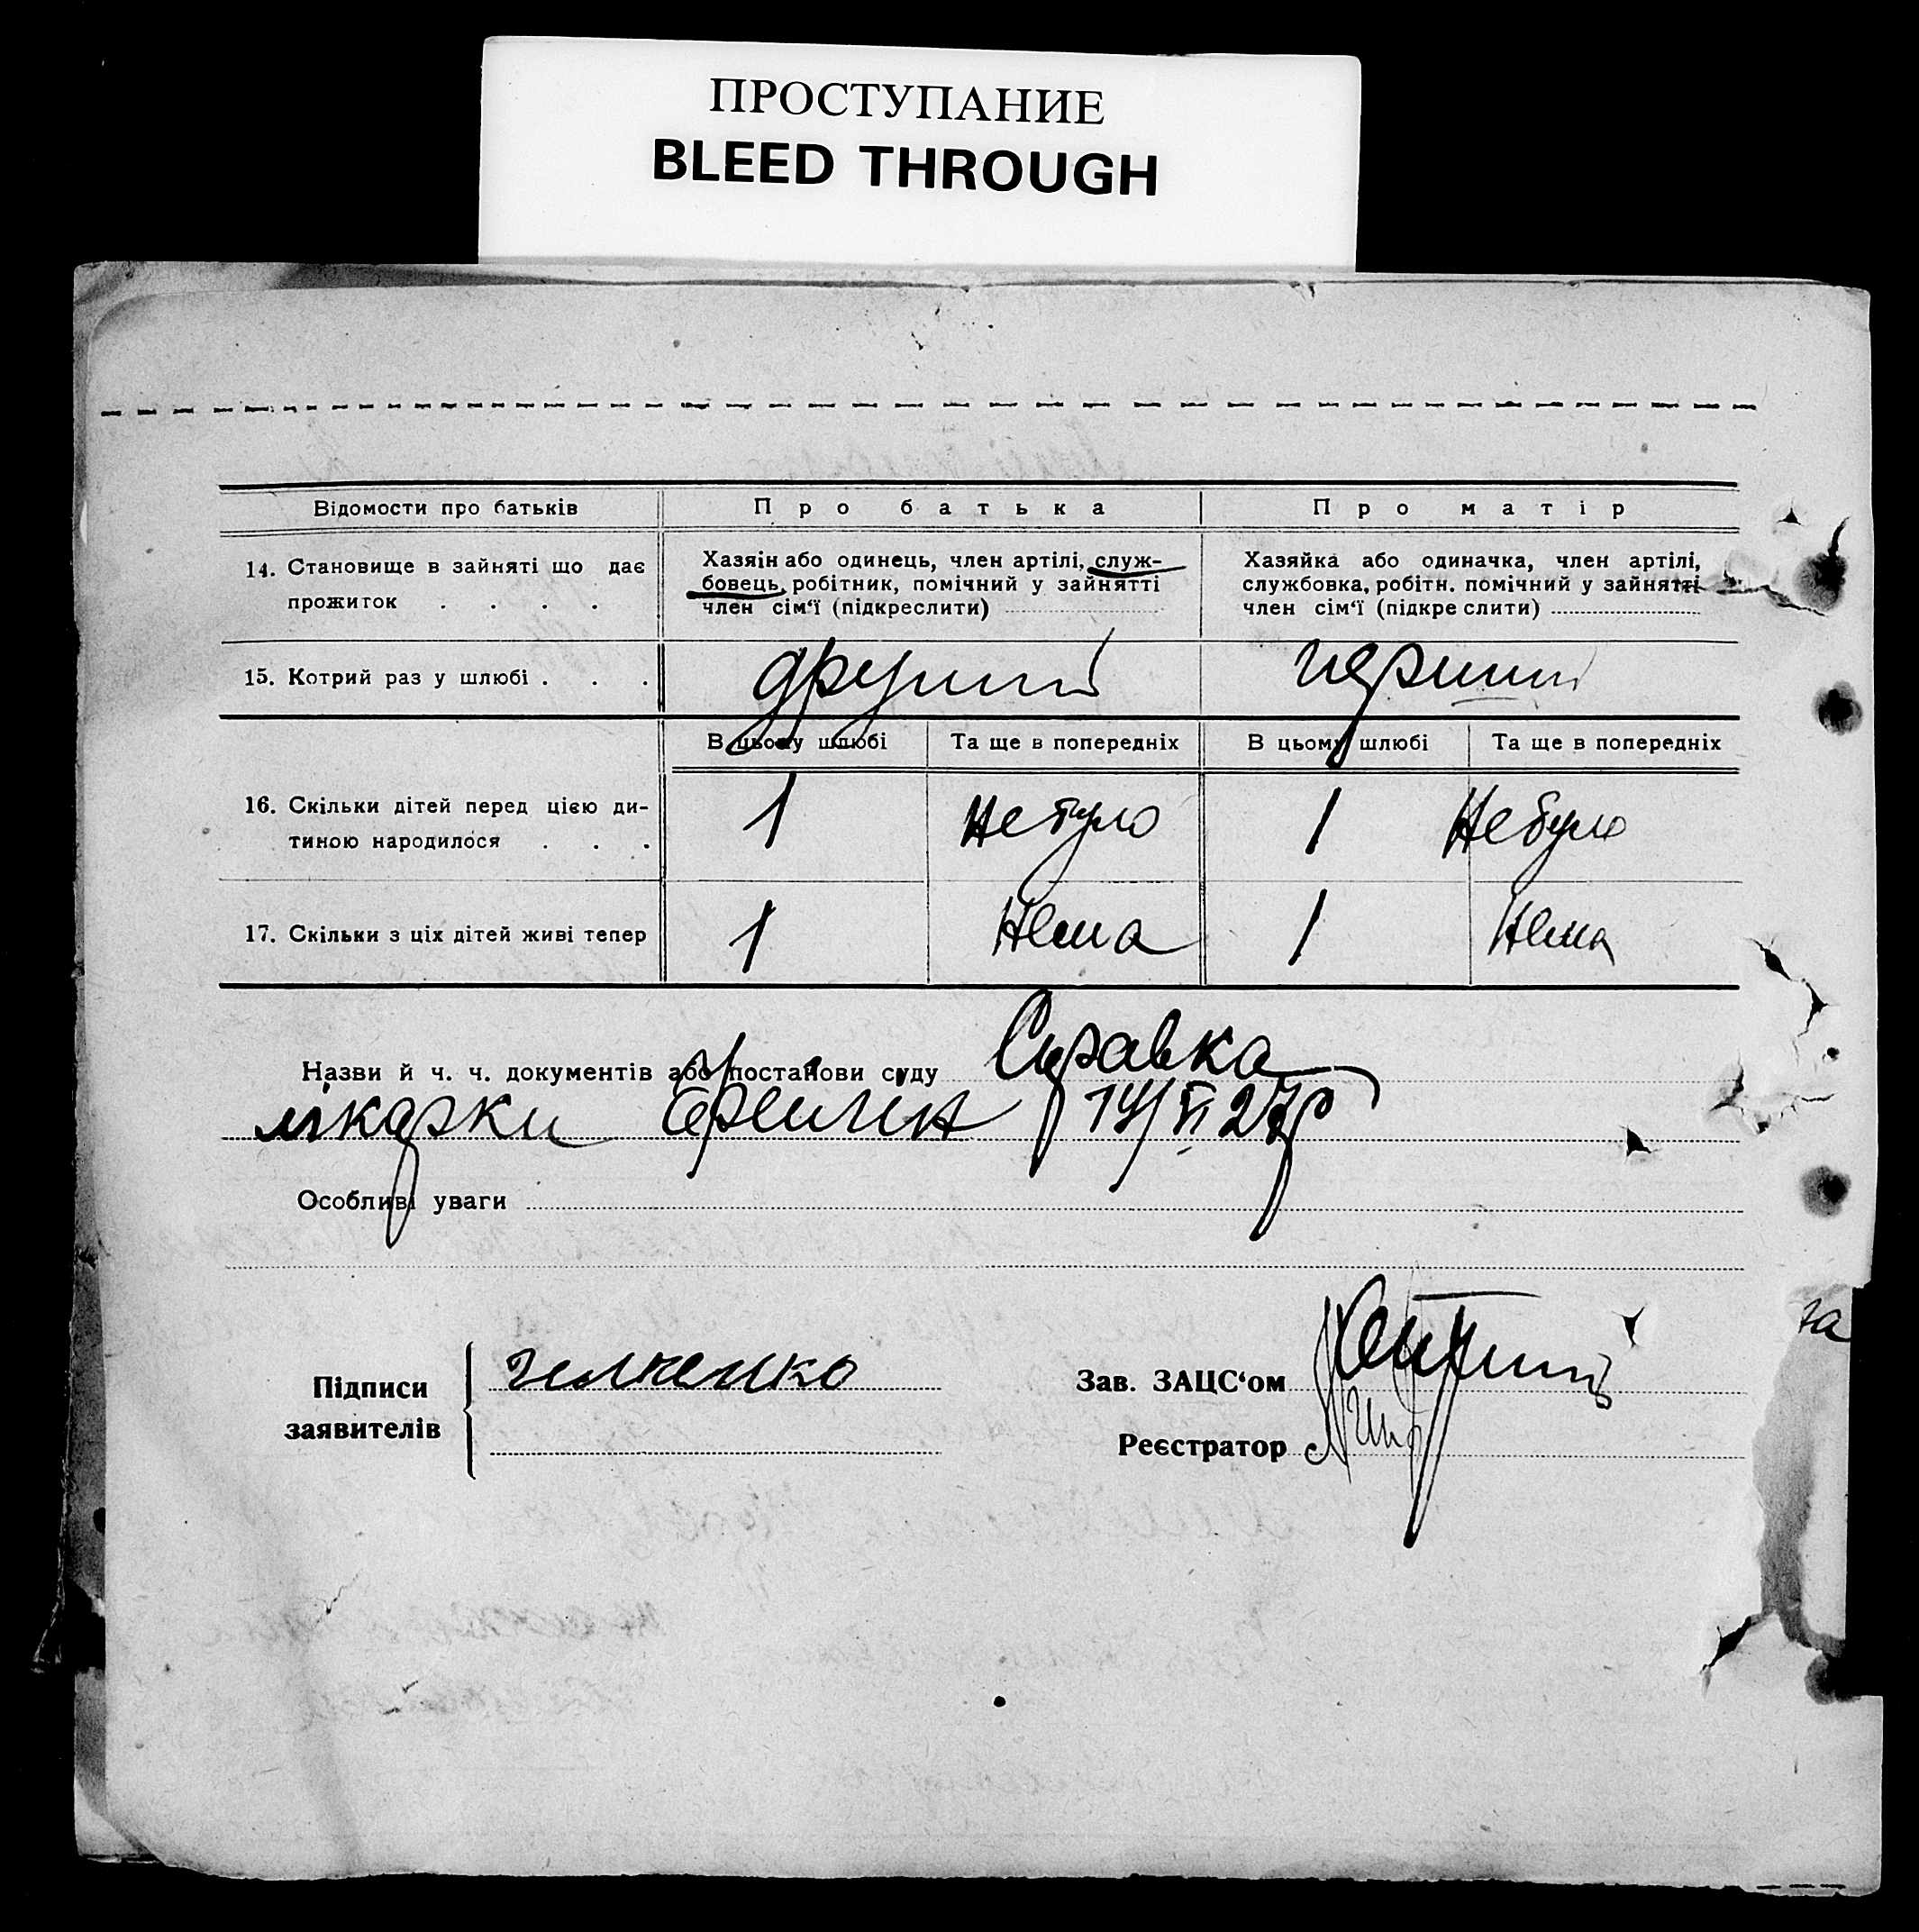 ПРОСТУПАНИЕ
BLEED THROUGH
Відомости про батьків Про батька Про матір
14. Становище в зайняті що дає
прожиток . . . .
Хазяїн або одинець, член артілі, служ-
бовець, робітник, помічний у зайнятті
член сім‘ї (підкреслити)
Хазяйка або одиначка, член артілі,
службовка, робітн. помічний у зайнятті
член сім‘ї (підкре слити)
15. Котрий раз у шлюбі . . . другий перший
В цьому шлюбі Та ще в попередніх В цьому шлюбі Та ще в попередніх
16. Скільки дітей перед цією ди-
тиною народилося . . .
1 Небуло 1 Небуло
17. Скільки з ціх дітей живі тепер 1 Нема 1 Нема
Назви й ч. ч. документів або постанови суду Справка
лікарки 14/VI 27р
Особливі уваги
Підписи
заявителів
Зав. ЗАЦС‘ом
Реєстратор
та